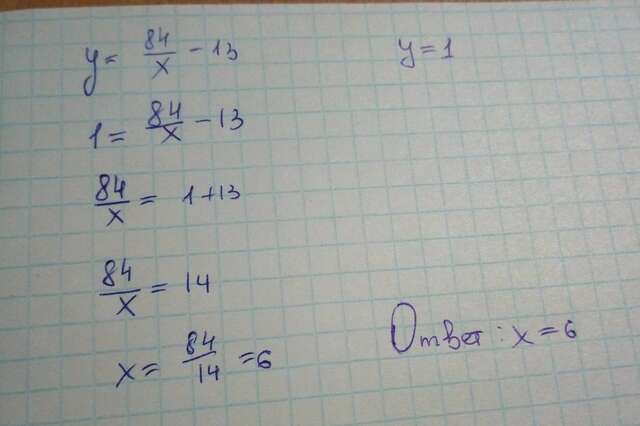 y = 84/x - 13
y = 1
1 = 84/x - 13
84/x = 1 + 13
84/x = 14
x = 84/14 = 6
Ответ: x = 6